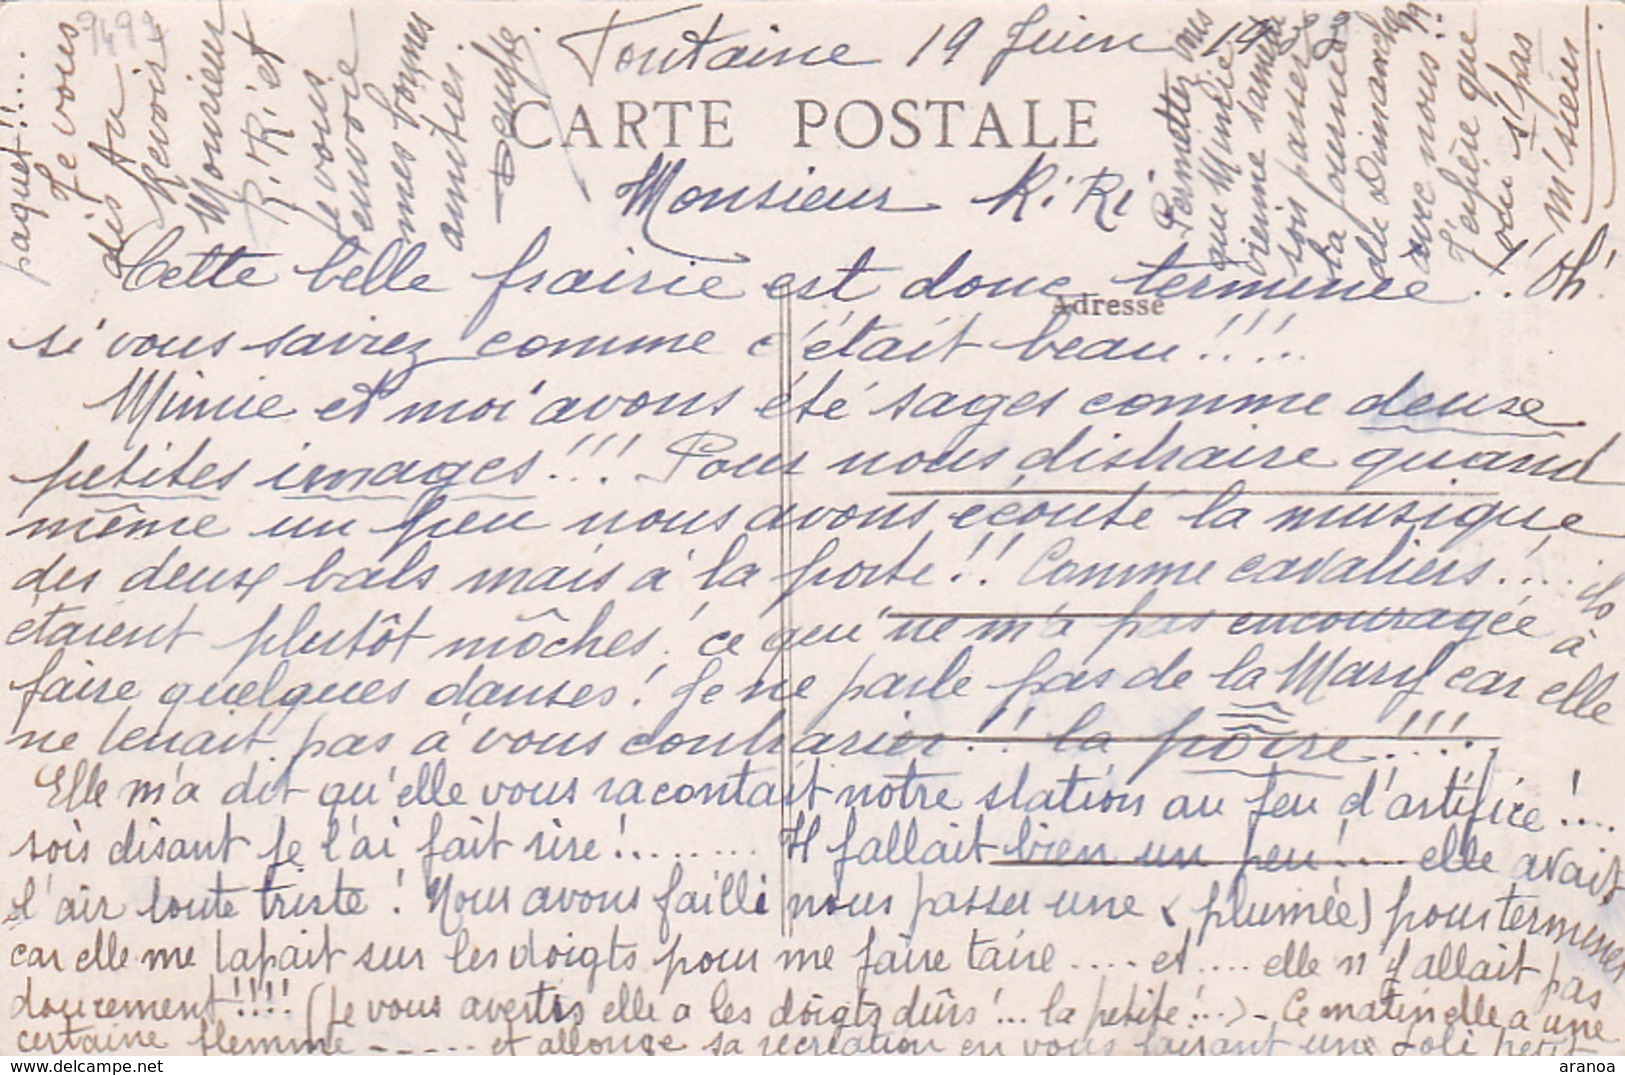 Fontaine 19 Juin
CARTE POSTALE
Monsieur RiRi
Adresse
Cette belle frairie est donc terminée!. Oh!
si vous saviez comme c'était beau!!!...
Mimie et moi avons été sages comme deuse
petites images!!! Pour nous distraire quand
même un peu nous avons écouté la musique
des deux bals mais à la porte!! Comme cavaliers!... ils
étaient plutôt môches! ce qui ne m'a pas encouragée à
faire quelques danses! Je ne parle pas de la Mary car elle
ne tenait pas à vous contrarier!! la pôire!!!!
Elle m'a dit qu'elle vous racontait notre station au feu d'artifice!...
sois disant je l'ai fait rire!........ Il fallait bien un peu!... elle avait
l'air toute triste! Nous avons failli nous passer une (plumée) pour terminer
car elle me tapait sur les doigts pour me faire taire .... et .... elle n'y allait pas
doucement!!!! (Je vous avertis elle a les doigts dûrs!... la petite!...) - Ce matin elle a une
certaine flemme ----- et allonge sa récréation en vous faisant une Joli petit
paquet!!....
Je vous
dis Au
Revoir
Monsieur
RiRi et
Je vous
envoie
mes bonnes
amitiés
Permettez vous
que Mimie
vienne samedi
soir passer
la journée
du Dimanche
avec nous?
J'espère que
oui s'pas
m'sieur
aranoa